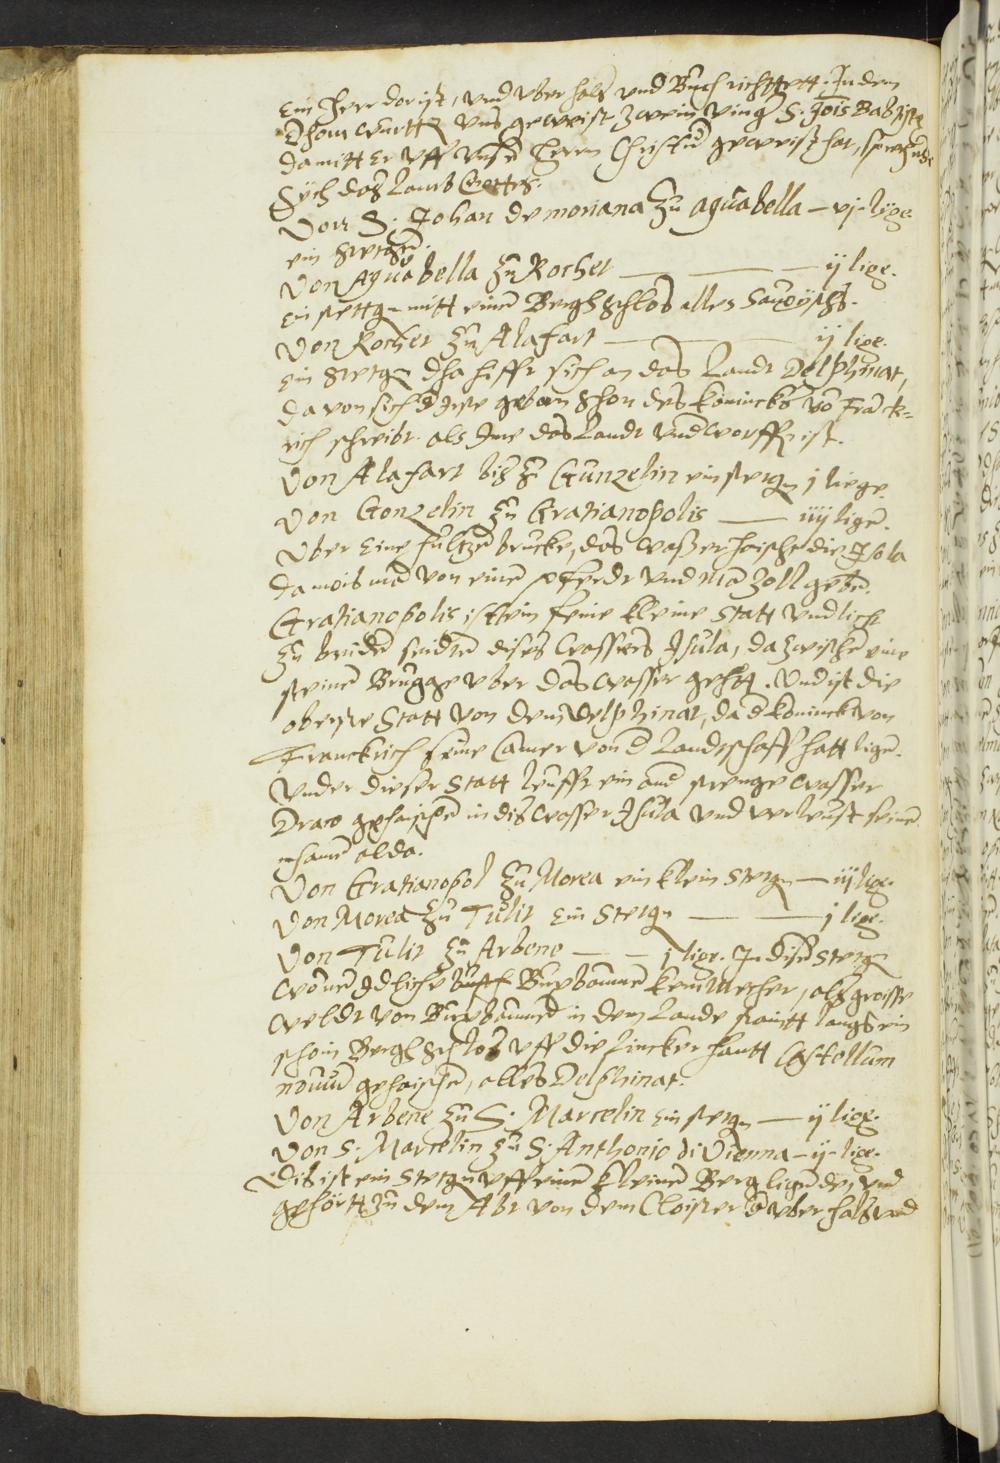 Ein Herr dar ist, und uber hals und Buch richttett. In dem
Thom wurtt uns geweist zwein Ving S. Jois Babtiste
damitt er uff unsen Herrn Christum geweist hat, sprechende
Sych das Lamb Gottes.
Von S. Johan de moriana zu aguabella – vj- lige
ein stetgen.
Von Aguabella zu Rochet — — — ij lige.
ein stettgen mitt einem Bergh Schlos alles Saueysch.
Von Rochet zu Alafart — — — ij lige.
Ein stetgen dha hefft sich an das Landt Delphinat,
da von sich d irste geboren Shon des Konincks vo Franck=
rich schreibt. als Ime das Landt underworffen ist.
Von Alafart bis zu Gunzelin ein stetgen j liege.
Von Gonzelin zu Gratianopolis — iiij ligen.
Uber eine hultzen brucke, das wasser heische die Isola
da mois man von einem pferde und Man Zoll geben.
Gratianopolis ist ein feine kleine Statt und licht
zu beiden seidten dises Wassers Isula, da zwischen eine
steinen Brugge uber das wasser gehet. Und ist die
oberste Statt von dem Delphinat, da d Koninck von
Franckrich seine Camer von d Landtschafft hatt ligen.
Under dieser Statt leufft ein and strenge wasser
Draco geheischen in dis wasser Isula und verleust seinen
namen alda.
Von Gratianopol zu Morea ein klein stetgen — iij lige.
Von Morea zu Tulit Ein Stetgen — — j lige.
Von Tulit zu Arbene — — j lige. In disem Stetgen
wonen Edliche Buxbaumen kemmecher, als groisse
weldt von Buxbaumen in dem Lande staintt langs ein
schoin Bergh Schlos uff die lincker hantt Castellum
nouum geheischen, alles Delphinat.
Von Arbene zu S. Marcelin Ein stetgen — ij lige.
Von S. Marcelin zu S. Anthonio di Vienna – ij- lige.
Dis ist ein Stetgen uff einem kleinen Berg ligende, und
gehörtt zu dem Abt von dem Cloister d uber hals und